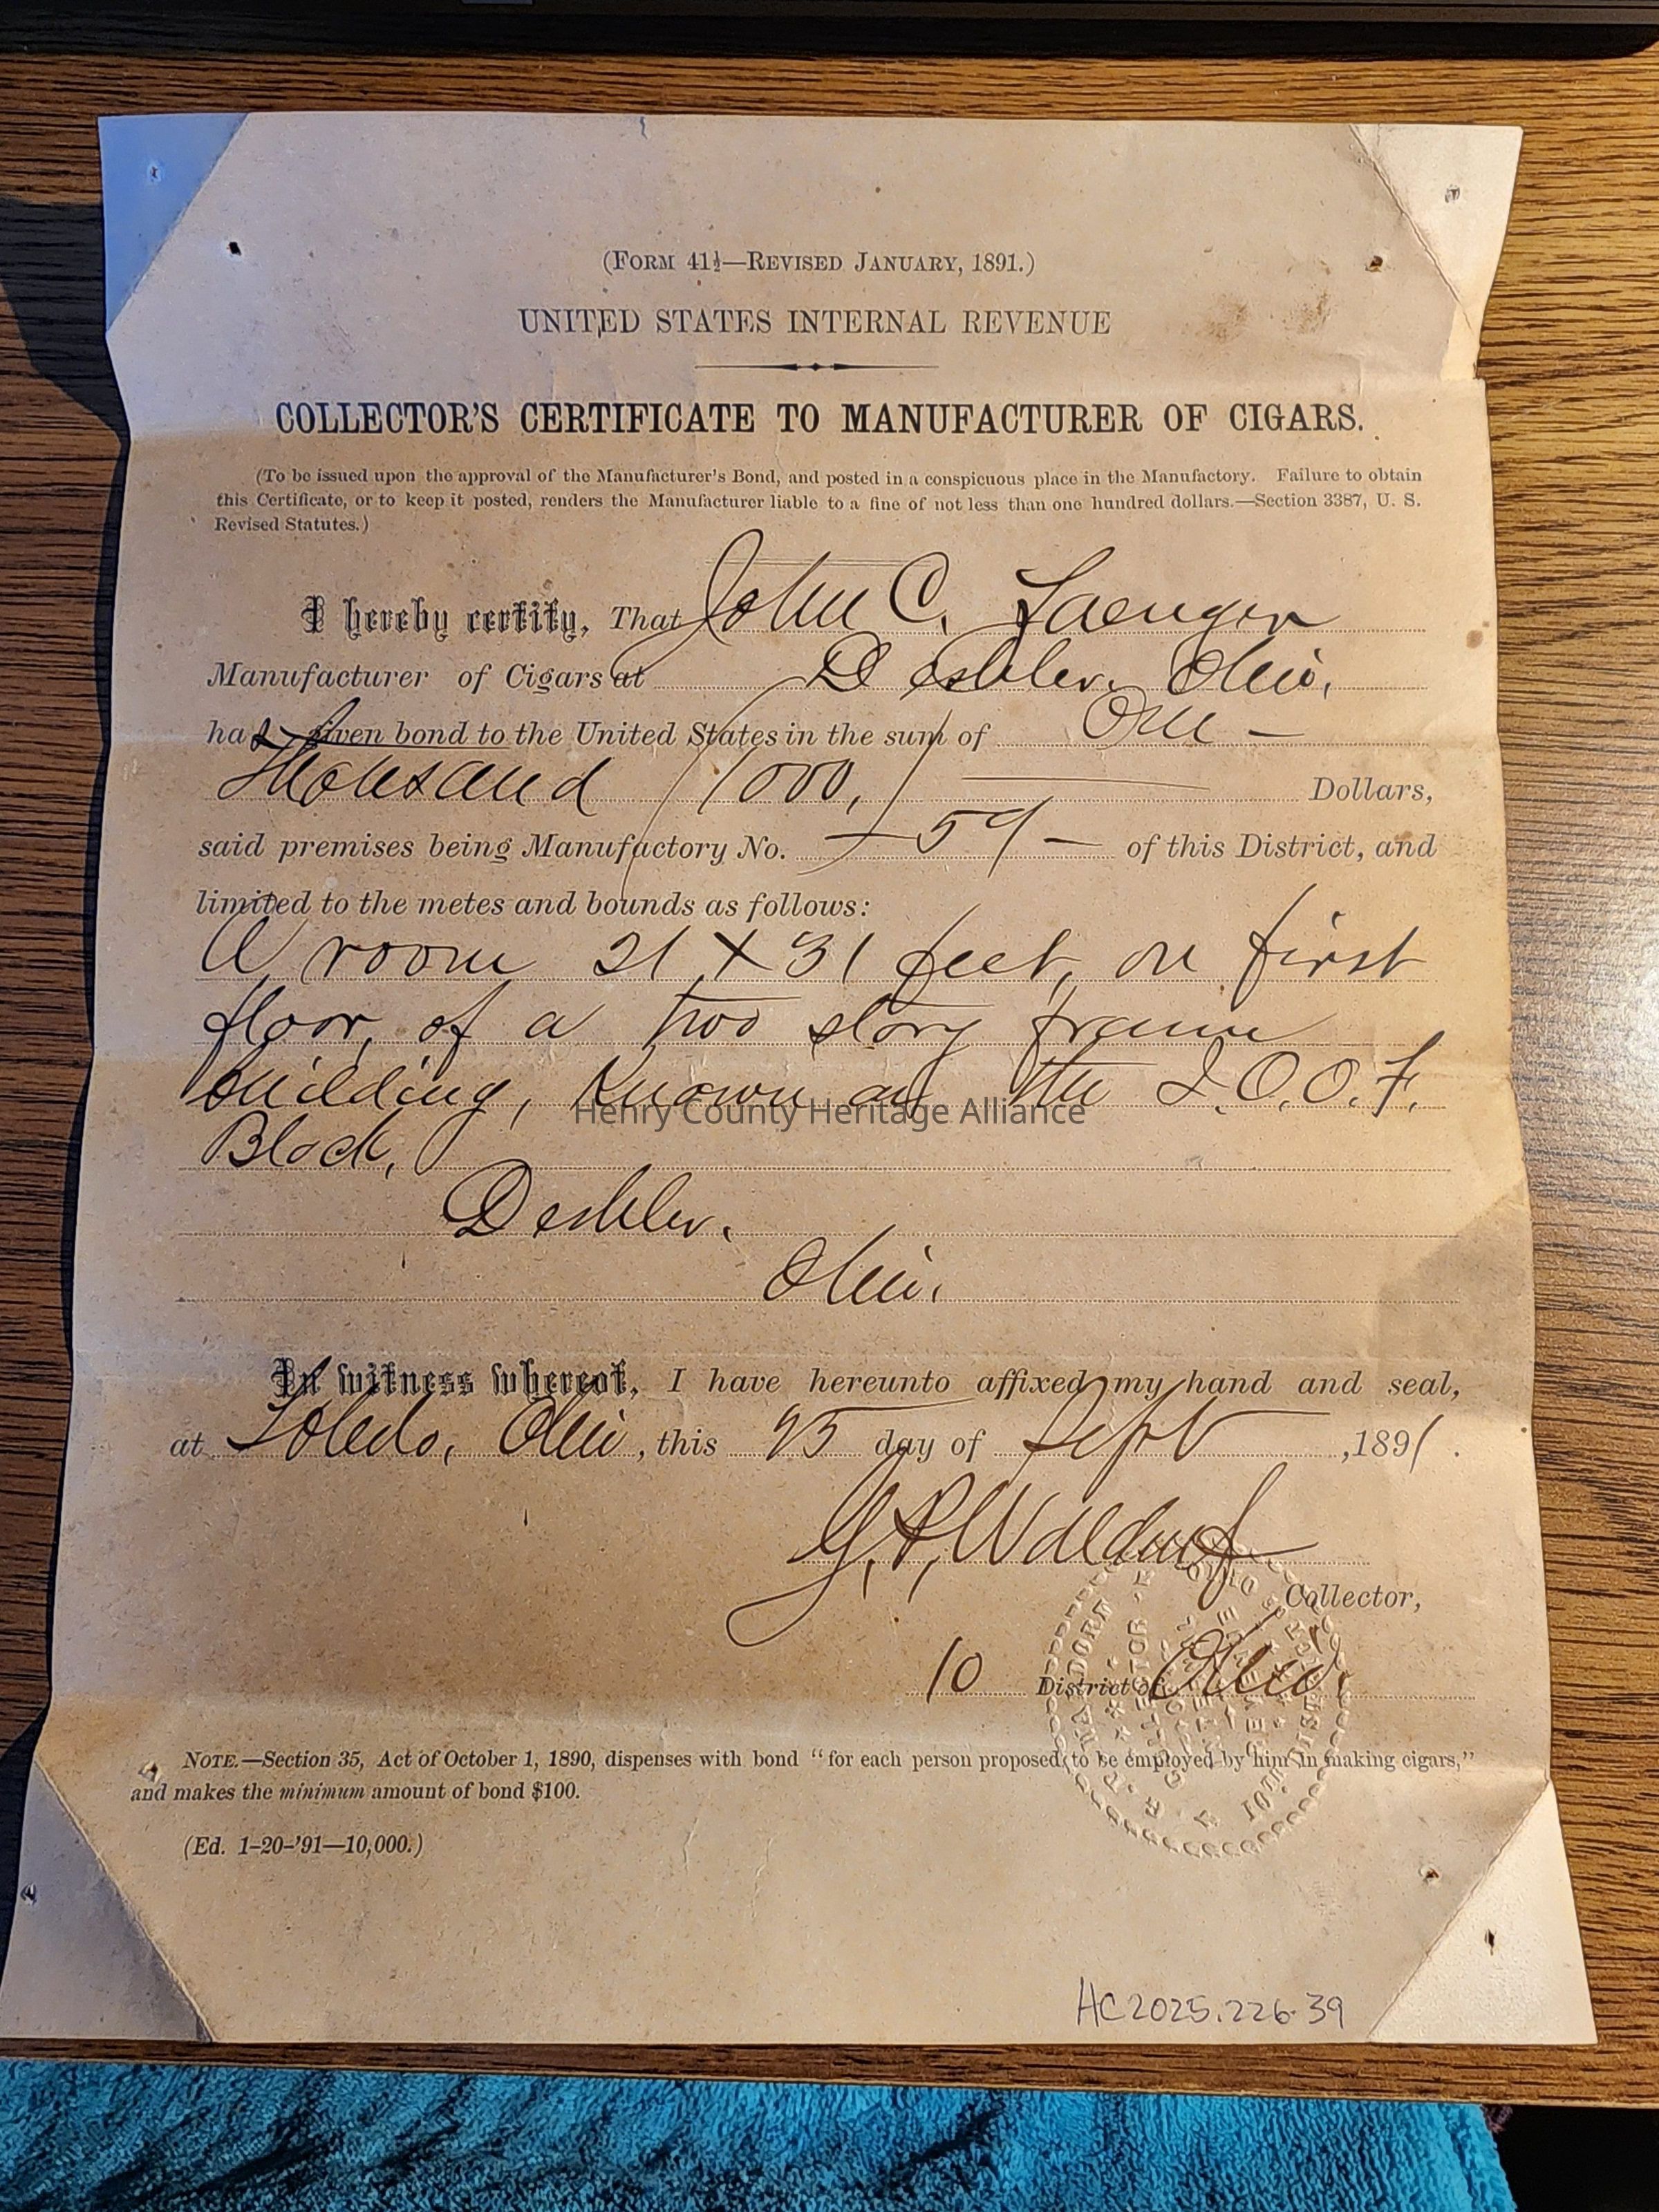 (FORM 41½—REVISED JANUARY, 1891.)
UNITED STATES INTERNAL REVENUE
COLLECTOR'S CERTIFICATE TO MANUFACTURER OF CIGARS.
(To be issued upon the approval of the Manufacturer's Bond, and posted in a conspicuous place in the Manufactory. Failure to obtain
this Certificate, or to keep it posted, renders the Manufacturer liable to a fine of not less than one hundred dollars.—Section 3387, U. S.
Revised Statutes.)
I hereby certify, That John C. Laenger
Manufacturer of Cigars at Deshler, Ohio,
has given bond to the United States in the sum of One —
Thousand (1000,) Dollars,
said premises being Manufactory No. — 59 — of this District, and
limited to the metes and bounds as follows:
A room 21 X 31 feet, on first
floor, of a two story frame
building, known as the I.O.O.F.
Block,
Deshler.
Ohio,
In witness whereof, I have hereunto affixed my hand and seal,
at Toledo, Ohio, this 25 day of Sept, 1891.
G. P. Waldorf
Collector,
10 District of Ohio.
NOTE.—Section 35, Act of October 1, 1890, dispenses with bond "for each person proposed to be employed by him in making cigars,"
and makes the minimum amount of bond $100.
(Ed. 1-20-'91—10,000.)
HC2025.226.39
Henry County Heritage Alliance